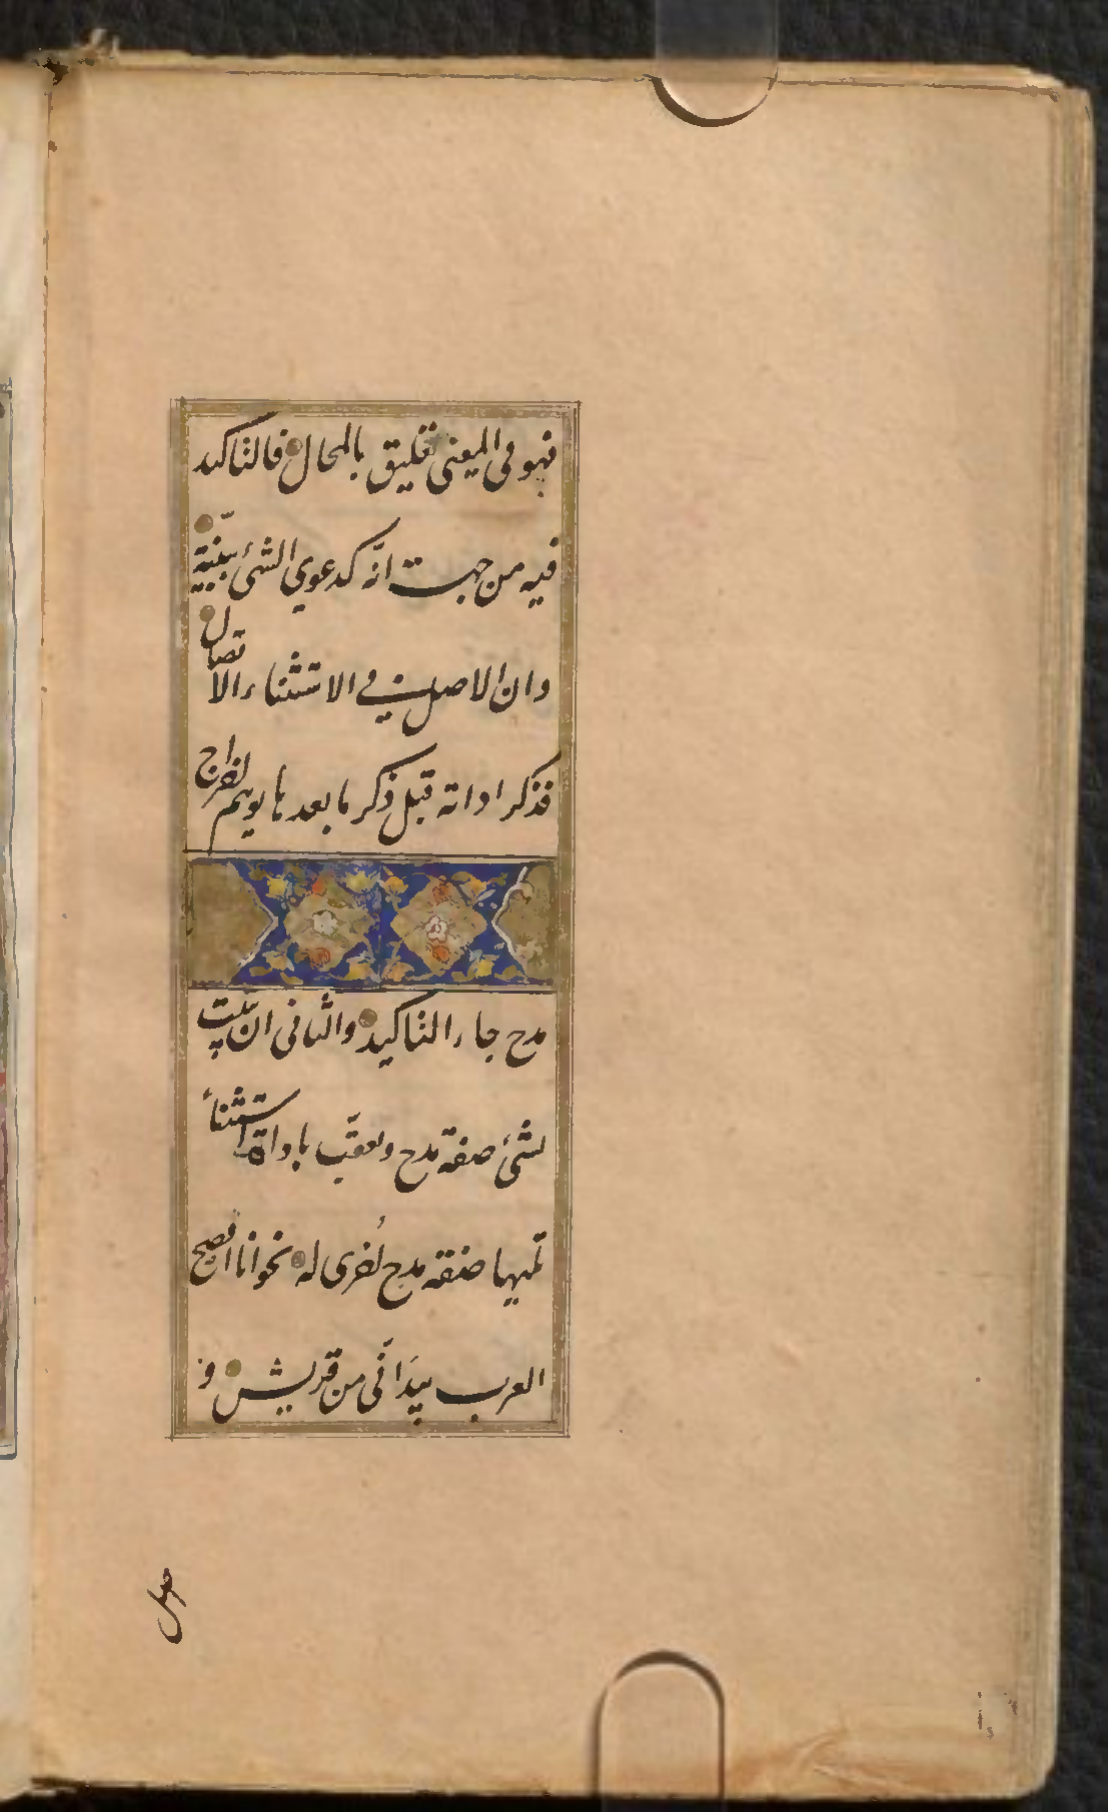 فهو فی المعنی تعلیق بالمحال فالتاکید
فیه من جهت انّه کدعوي الشئ ببّینة
وان الاصل في الاستثناء الاتصال
فذکر اداته قبل ذکر ما بعدها یوهم اخراج
مدح جاء التاکید والثانی ان یثبت
لشئ صفة مدح و یعقّب باداة استثناء
تلیها صفة مدح اُخری له نحو انا افصح
العرب بیدَ انّی من قریش و